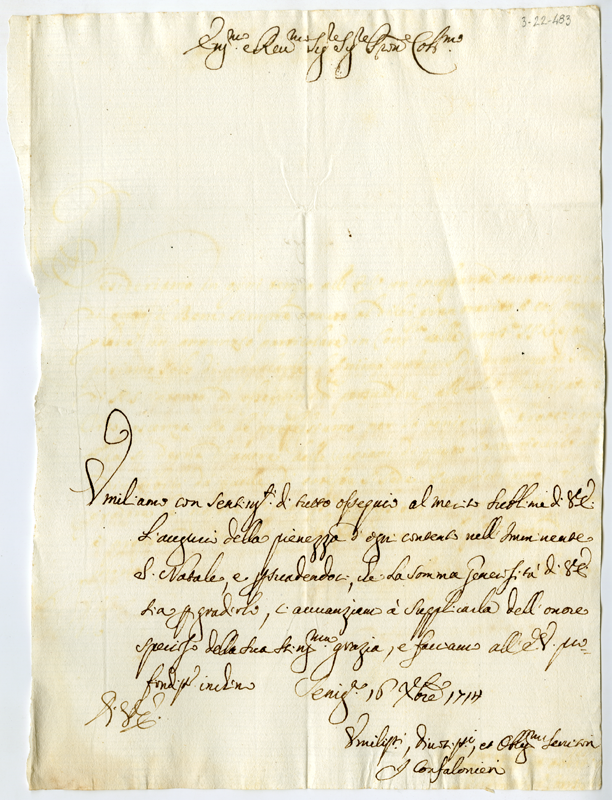 3-22-483
Em.mo e Reu.mo Sig.re Sig.re Pron.e Col.mo
Vmiliamo con sentim.ti di tutto ossequio al merito sublime di V.E.
L'augurij della pienezza d'ogni contento nell'Imminente
S. Natale, e che la somma Generosità di V.E.
sia p gradirli, ci auuanziamo à supplicarla dell'onore
specioso della sua stim.ma grazia, e facciamo all'E.V. pro=
fondiss.o inchino Senig.a 16 Xbre 1714
Di V.E.
Vmiliss.i, Diuotiss.i, et Oblig.mi Seruitori
Confalonieri